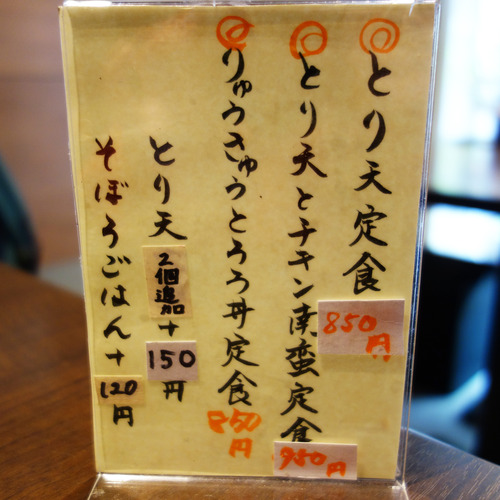 とり天定食 850円
とり天とチキン南蛮定食 950円
りゅうきゅうとろろ丼定食 850円
とり天 2個追加 + 150円
そぼろごはん + 120円